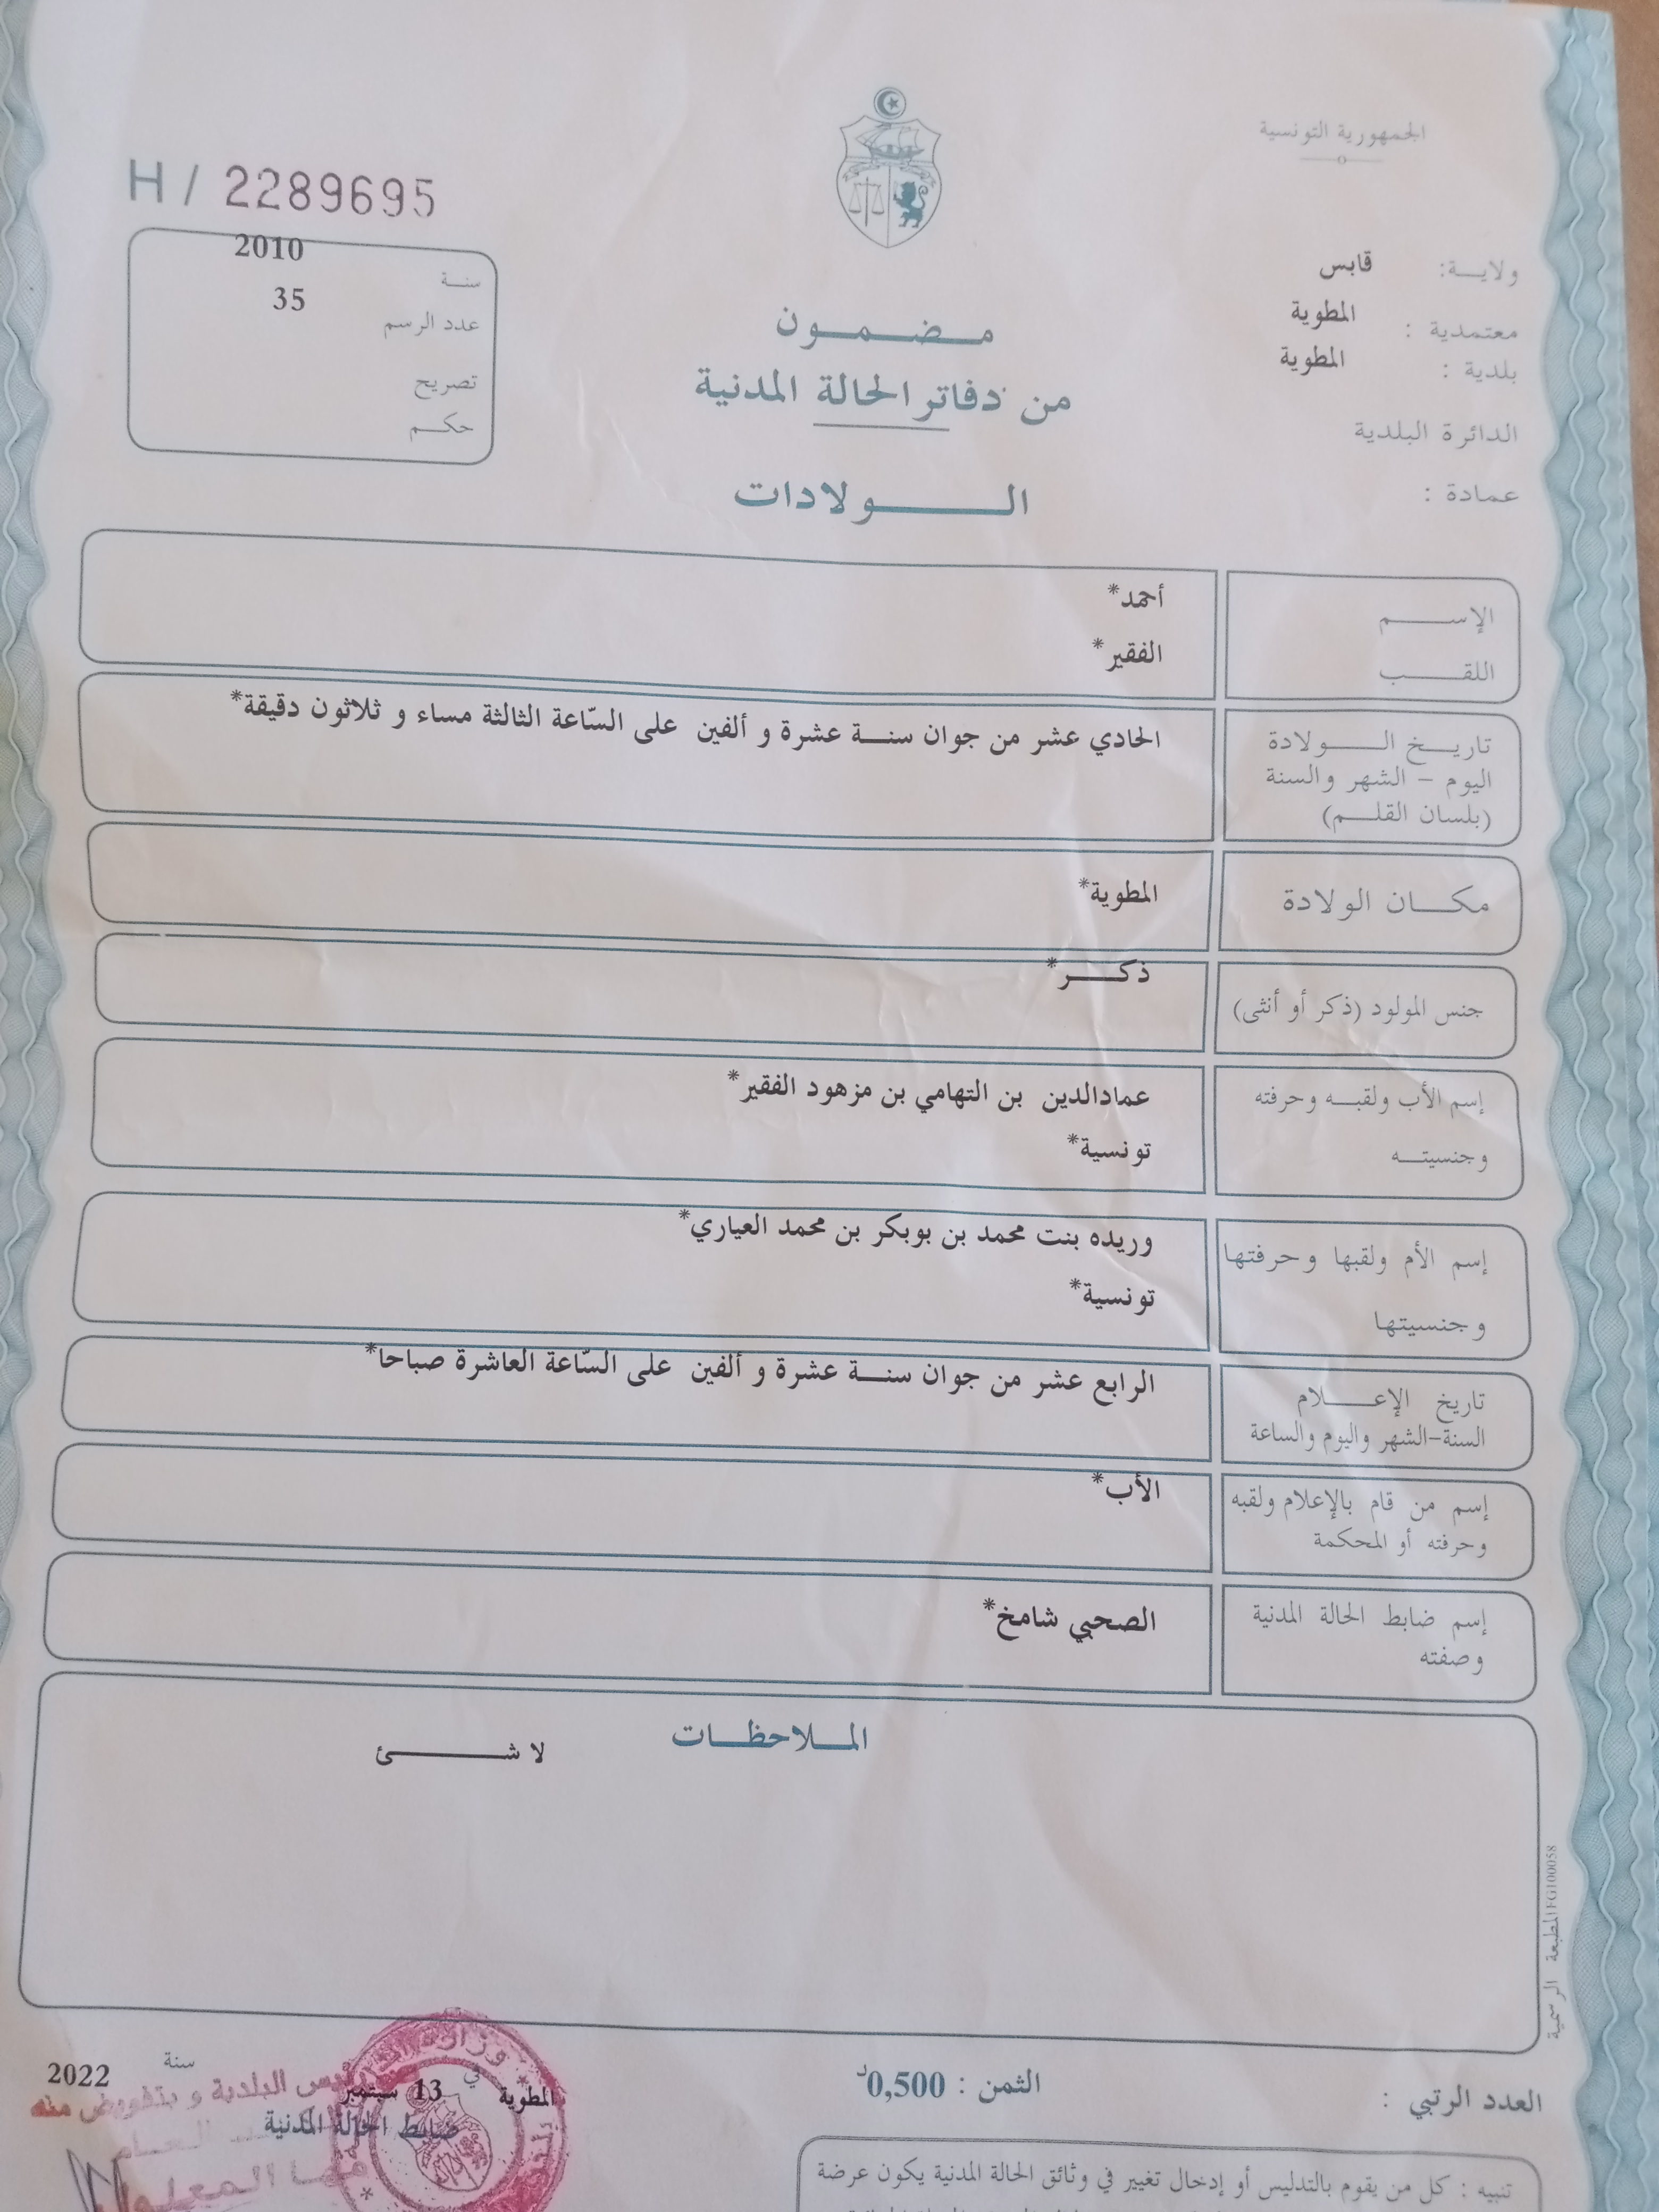 الجمهورية التونسية
H / 2289695
ولايـــة: قابس
معتمدية : المطوية
بلدية : المطوية
الدائرة البلدية
عمادة :
2010
سنــة
35
عدد الرسم
تصريح
حكــم
مـضـمـون
من دفاتر الحالة المدنية
الــولادات
الإســـم
أحمد*
اللقـــب
الفقير*
تاريــخ الــولادة
اليوم – الشهر والسنة
(بلسان القلــم)
الحادي عشر من جوان سنــة عشرة و ألفين على السّاعة الثالثة مساء و ثلاثون دقيقة*
مكــان الولادة
المطوية*
جنس المولود (ذكر أو أنثى)
ذكـــر*
إسم الأب ولقبــه وحرفته
وجنسيتــه
عمادالدين بن التهامي بن مزهود الفقير*
تونسية*
إسم الأم ولقبها وحرفتها
وجنسيتها
وريده بنت محمد بن بوبكر بن محمد العياري*
تونسية*
تاريخ الإعـــلام
السنة-الشهر واليوم والساعة
الرابع عشر من جوان سنــة عشرة و ألفين على السّاعة العاشرة صباحا*
إسم من قام بالإعلام ولقبه
وحرفته أو المحكمة
الأب*
إسم ضابط الحالة المدنية
وصفته
الصحبي شامخ*
المــلاحظــات
لا شــــئ
المطبعة الرسمية FG100058
العدد الرتبي :
الثمن : 0,500د
المطوية في 13 سبتمبر سنة 2022
رئيس البلدية و بتفويض منه
ضابط الحالة المدنية
مها المعلول
تنبيه : كل من يقوم بالتدليس أو إدخال تغيير في وثائق الحالة المدنية يكون عرضة